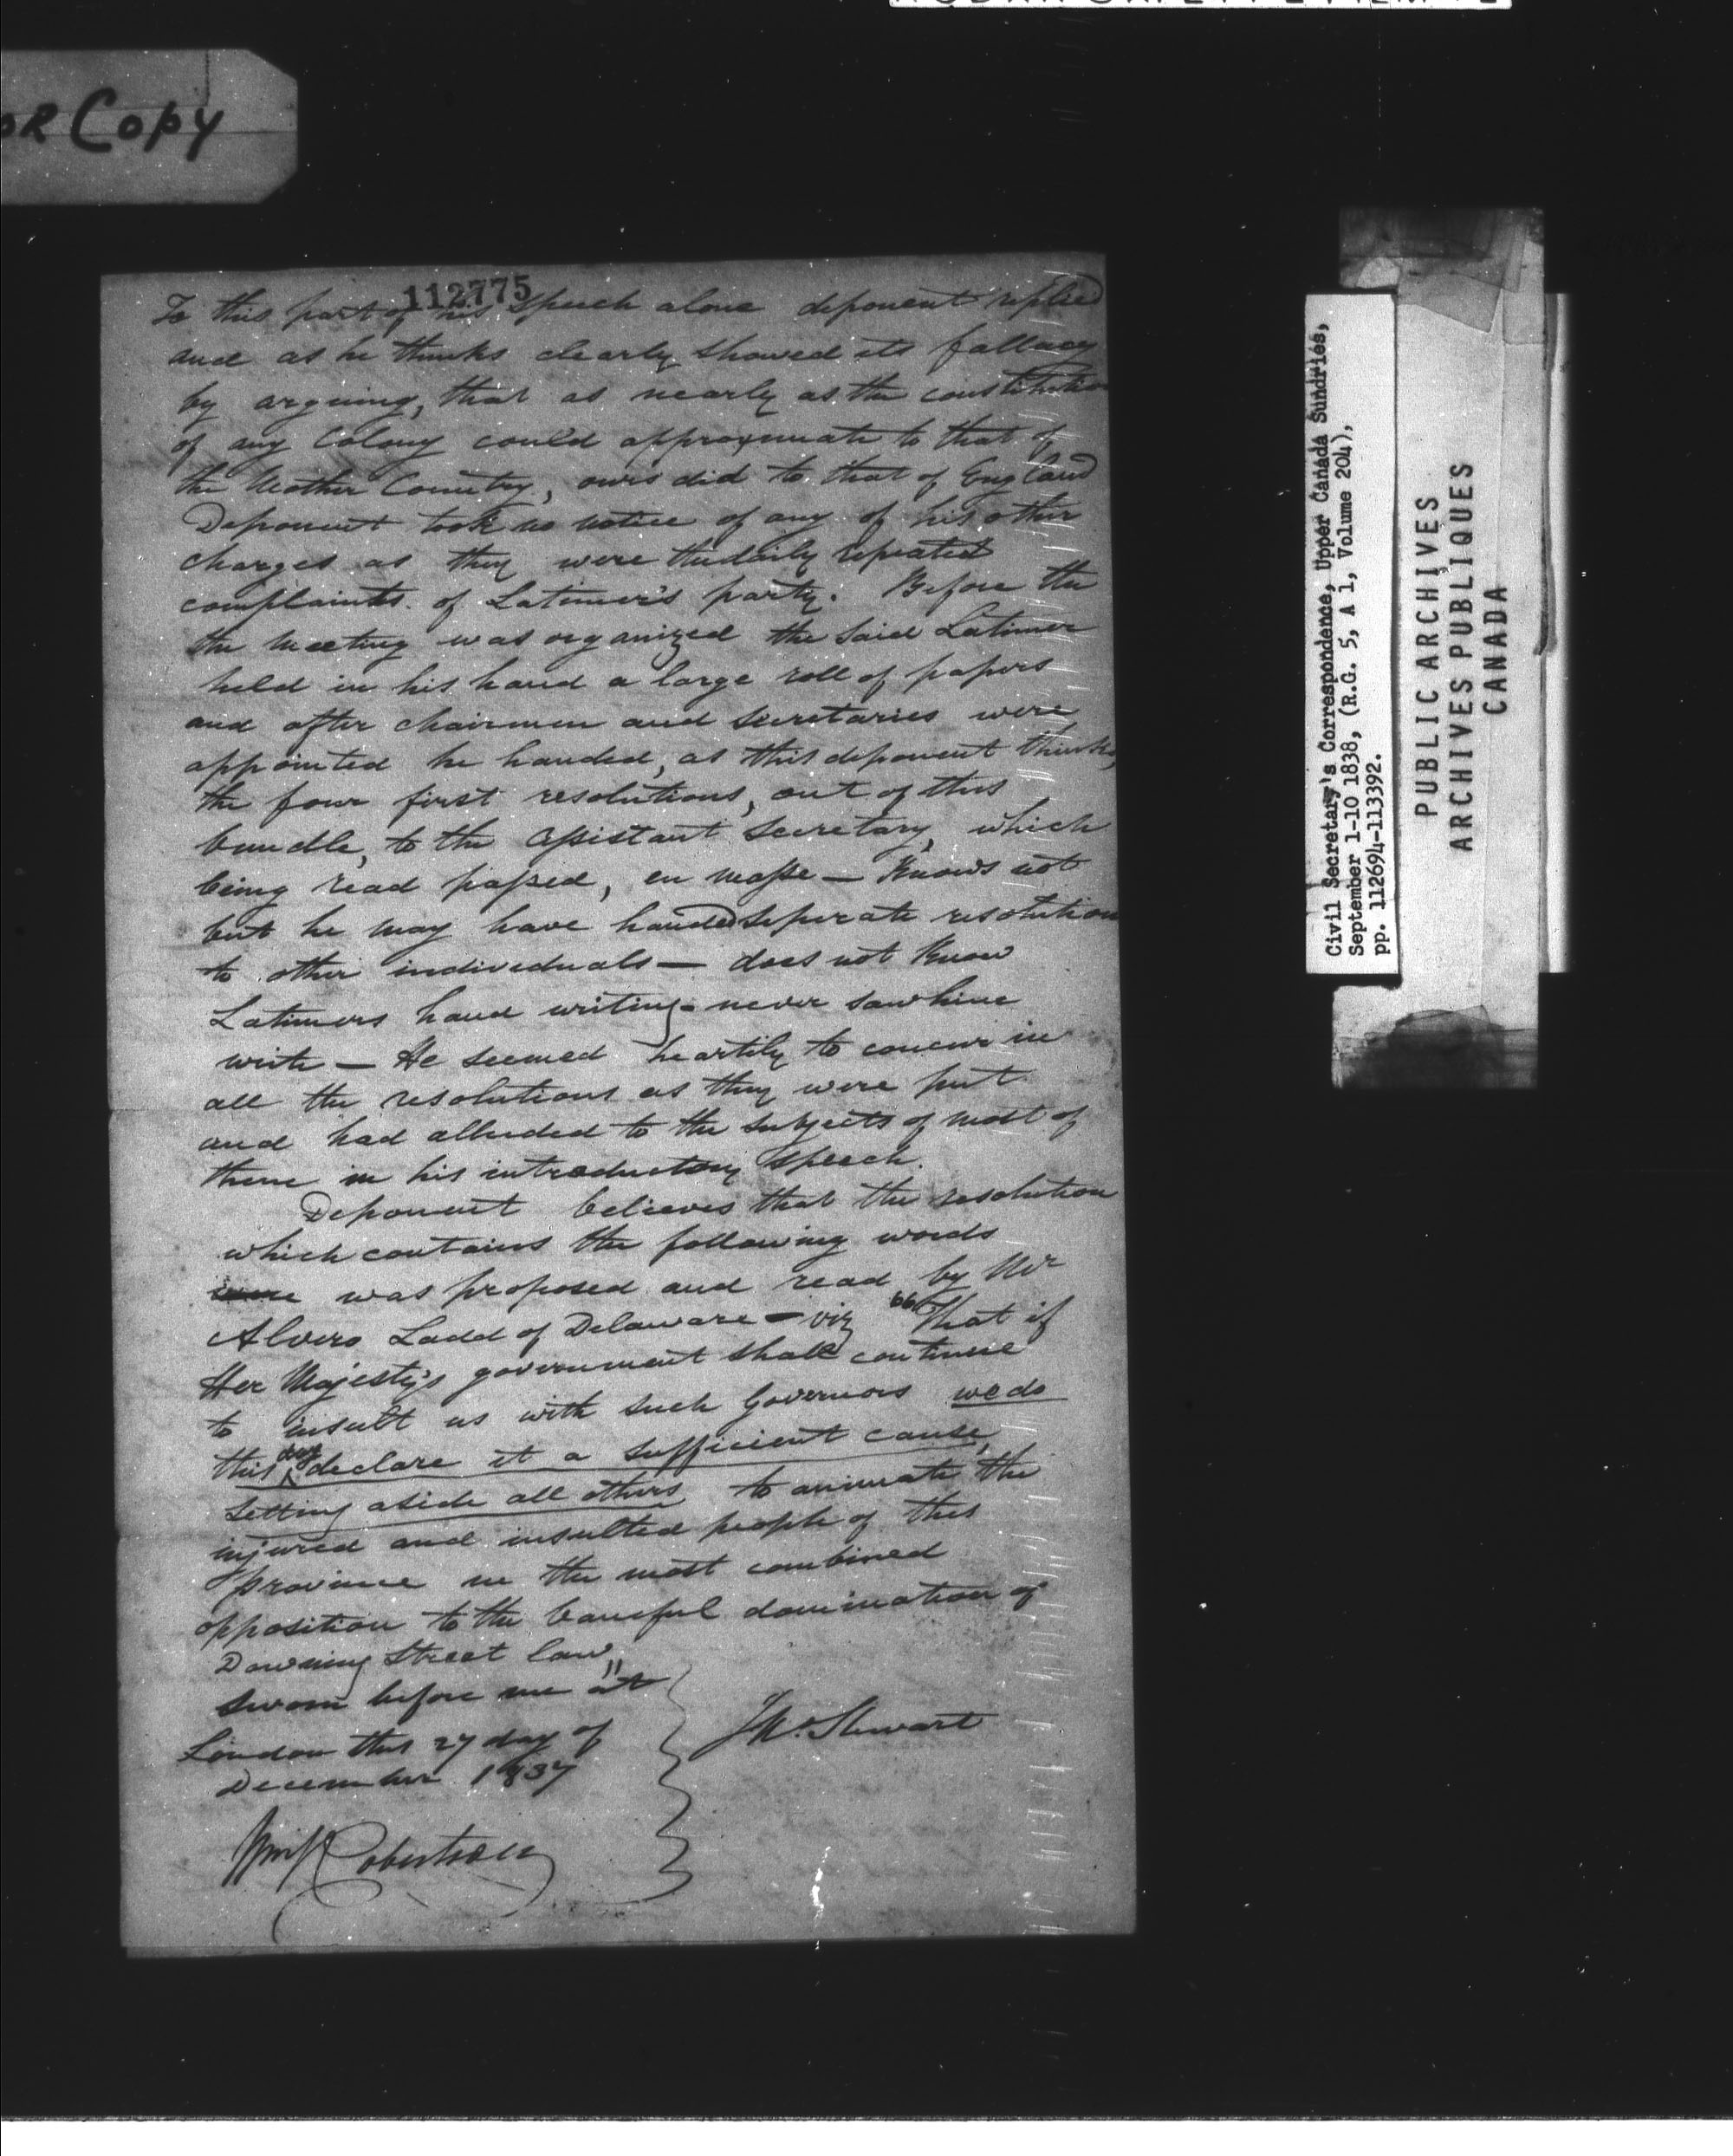 OR Copy
112775
To this part of his speech alone deponent replied
and as he thinks clearly showed its fallacy
by arguing, that as nearly as the constitution
of any Colony could approximate to that of
the Mother Country, ours did to that of England
Deponent took no notice of any of his other
charges as they were the daily repeated
complaints of Latimer's party. Before the
the Meeting was organized the said Latimer
held in his hand a large roll of papers
and after chairmen and secretaries were
appointed he handed, as this deponent thinks,
the four first resolutions, out of this
bundle, to the assistant secretary, which
being read passed, en masse — Knows not
but he may have handed seperate resolutions
to other individuals — does not know
Latimers hand writing - never saw him
write — He seemed heartily to concur in
all the resolutions as they were put
and had alluded to the subjects of most of
them in his introductory speech.
Deponent believes that the resolution
which contains the following words
was proposed and read by Mr
Alvero Ladd of Delaware — viz "That if
Her Majesty's government shall continue
to insult us with such Governors we do
this day declare it a sufficient cause,
setting aside all others to animate the
injured and insulted people of this
province in the most combined
opposition to the baneful domination of
Downing Street law"
Sworn before me at
London this 27 day of
December 1837
J M. Stewart
Wm Robertson
Civil Secretary's Correspondence, Upper Canada Sundries,
September 1-10 1838, (R.G. 5, A 1, Volume 204),
pp. 112694-113392.
PUBLIC ARCHIVES
ARCHIVES PUBLIQUES
CANADA